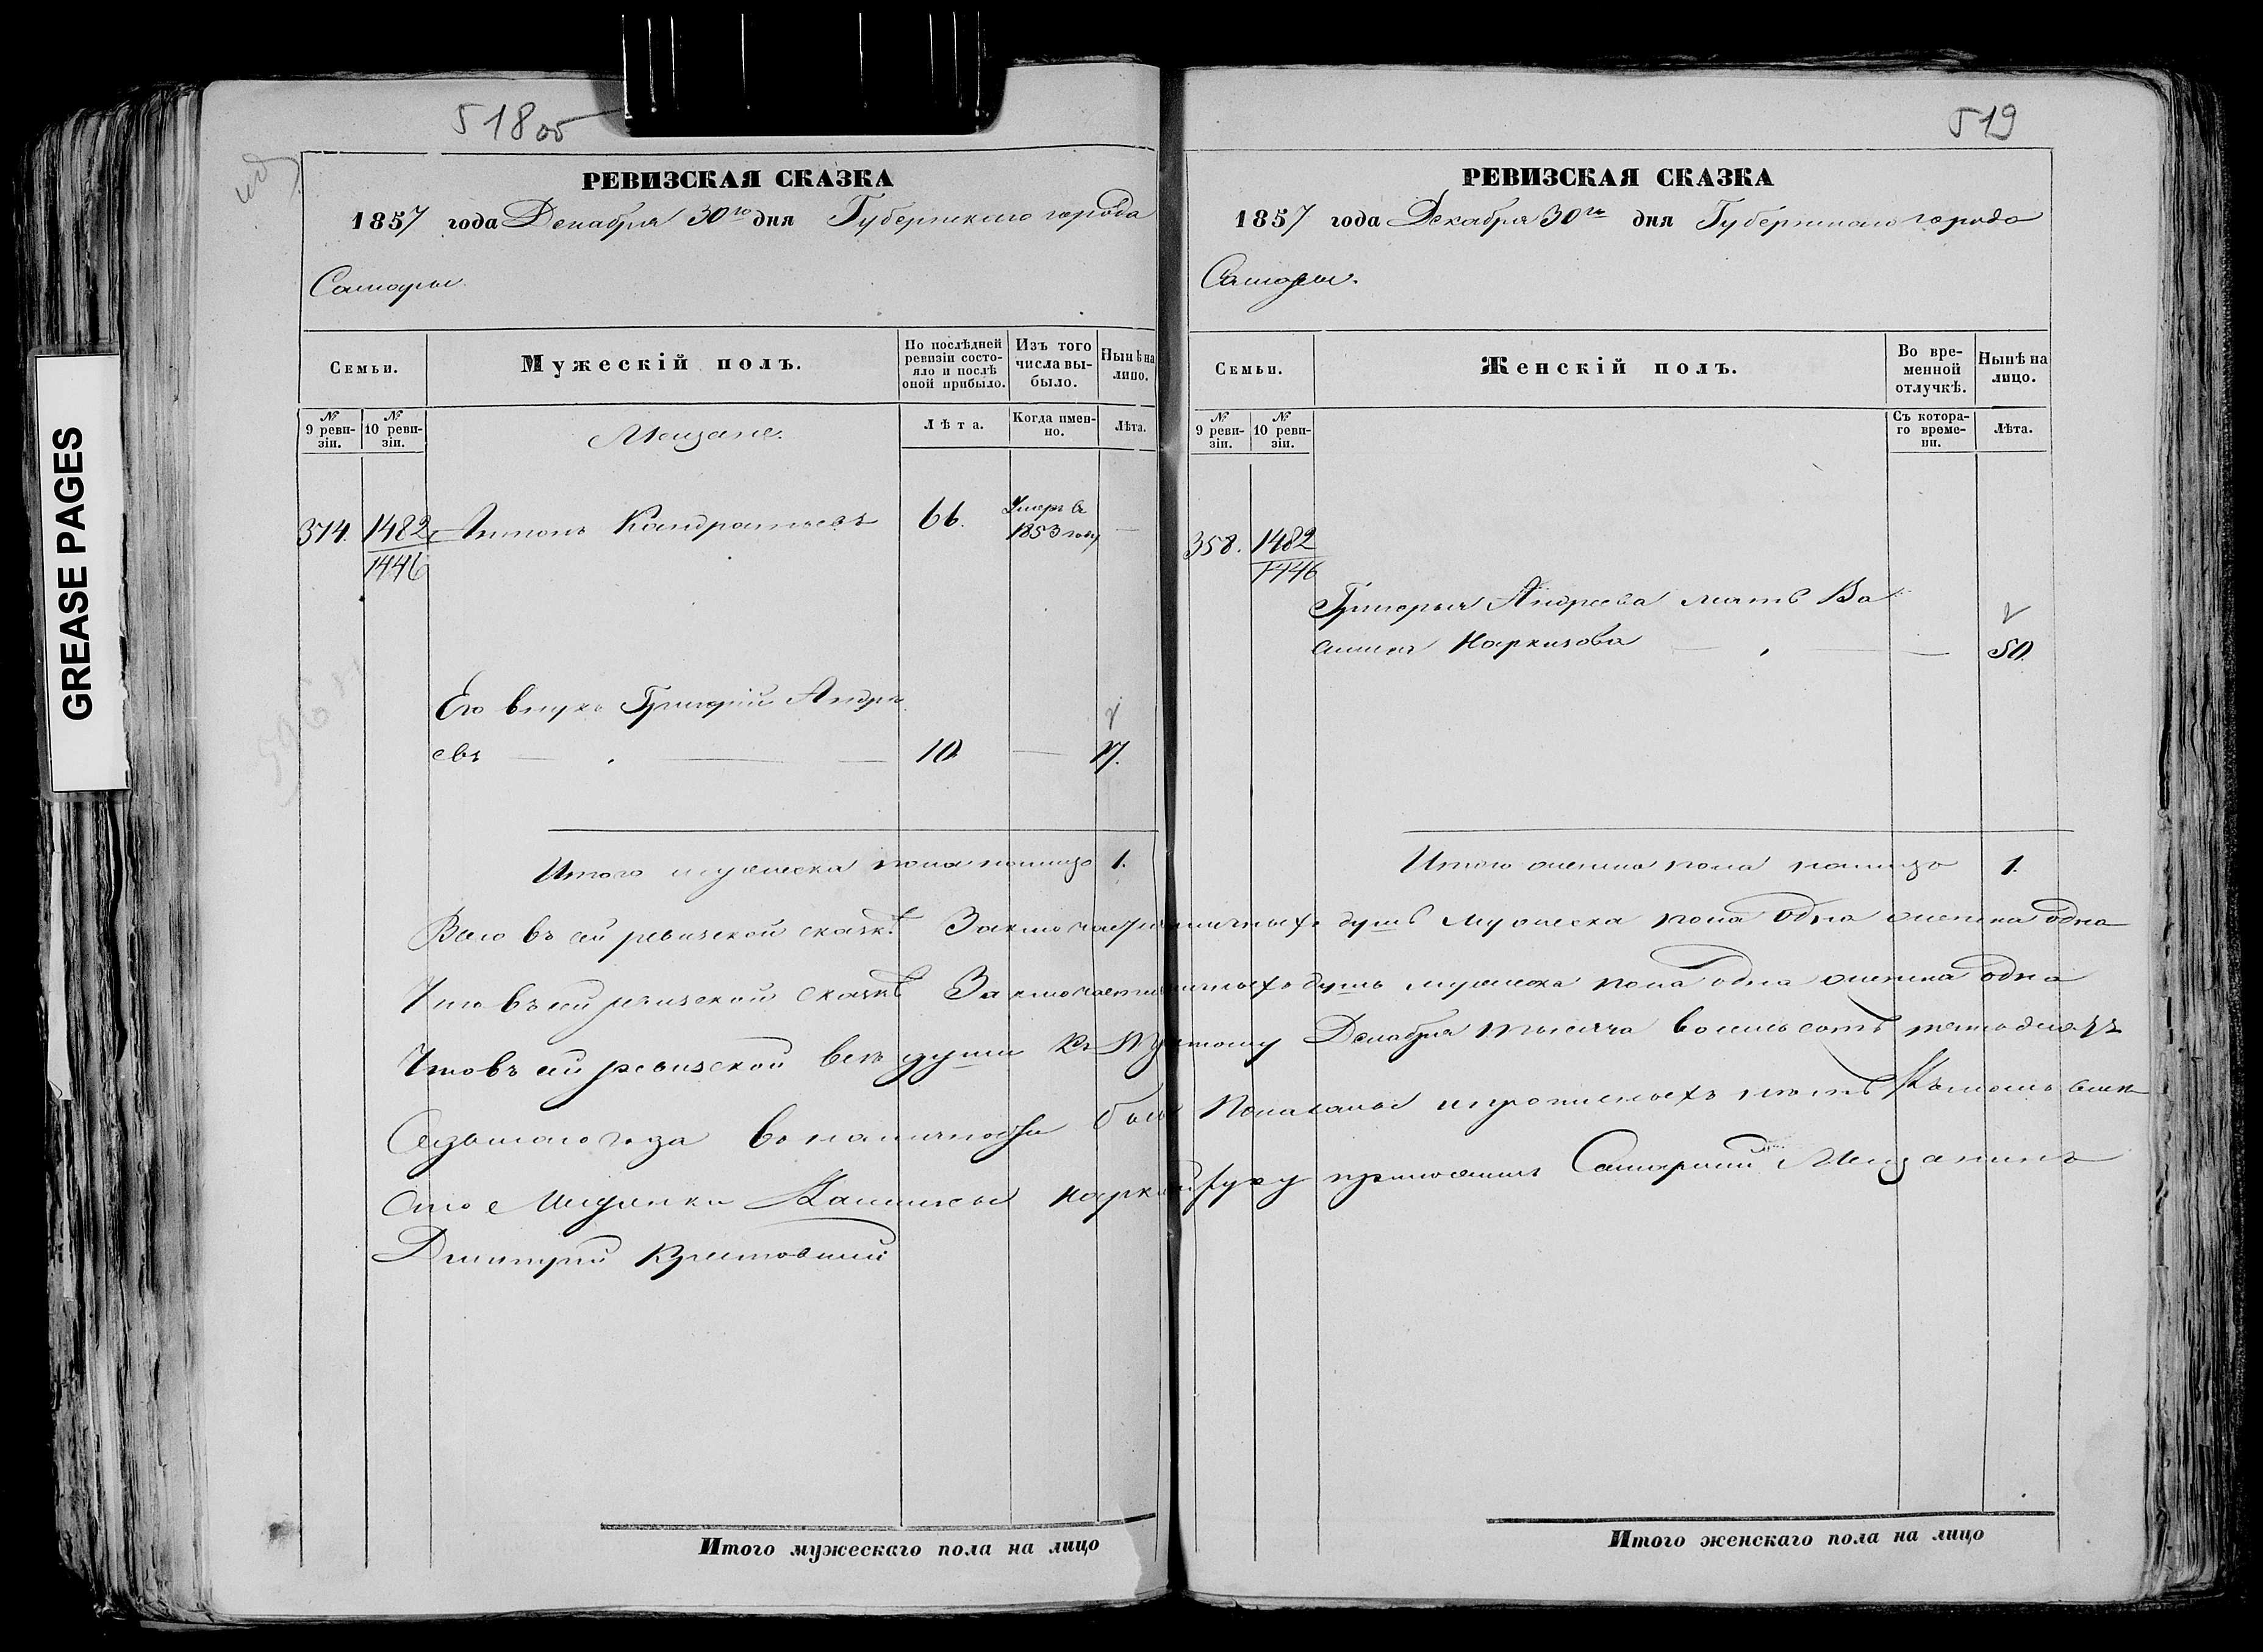 GREASE PAGES
518 об
РЕВИЗСКАЯ СКАЗКА
1857 года Декабря 30го дня Губернскаго города
Самары.
Семьи.
Мужескій полъ.
По послѣдней ревизіи состояло и послѣ оной прибыло.
Изъ того числа выбыло.
Нынѣ на лицо.
№ 9 ревизіи.
№ 10 ревизіи.
Мещане.
Лѣта.
Когда именно.
Лѣта.
374. 1482 Антонъ Кондратьевъ 66. Умеръ въ 1853 году
1446
Его внукъ Григорій Андре
евъ 10 17.
Итого мужеска пола налицо 1.
519
РЕВИЗСКАЯ СКАЗКА
1857 года Декабря 30го дня Губернскаго города
Самары.
Семьи.
Женскій полъ.
Во временной отлучкѣ.
Нынѣ на лицо.
№ 9 ревизіи.
№ 10 ревизіи.
Съ котораго времени.
Лѣта.
358. 1482
1446
Григорья Андреева мать Ва
силиса Наркизова 50.
Итого женска пола налицо 1.
Всего въ сей ревизской сказкѣ Заключается наличныхъ душъ мужеска пола одна женска одна
Что въ сей ревизской сказкѣ Заключается наличныхъ душъ мужеска пола одна женска одна
Что въ сей ревизской всѣ души къ Декабря тысяча восемьсотъ пятьдесятъ
Седьмаго года показаны и прописныхъ нѣтъ Къ
Мещанки руку приложилъ Самарскій Мещанинъ
Дмитрій
Итого мужескаго пола на лицо
Итого женскаго пола на лицо